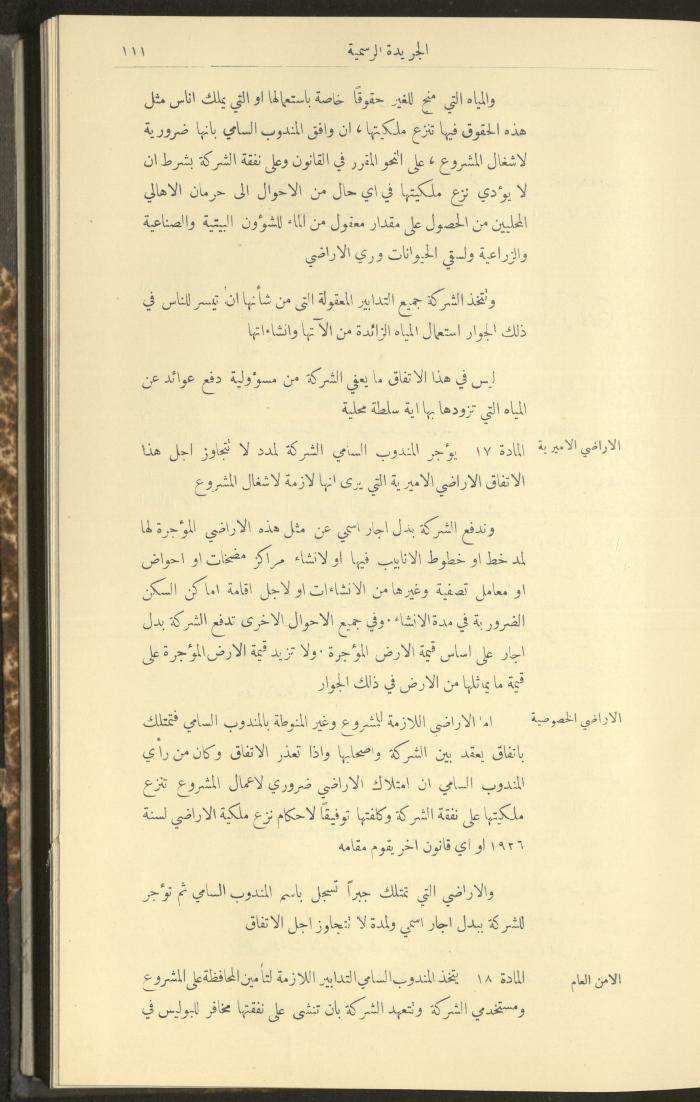 الجريدة الرسمية
١١١
والمياه التي منح للغير حقوقًا خاصة باستعمالها او التي يملك اناس مثل
هذه الحقوق فيها تنزع ملكيتها ، ان وافق المندوب السامي بانها ضرورية
لاشغال المشروع ، على النحو المقرر في القانون وعلى نفقة الشركة بشرط ان
لا يؤدي نزع ملكيتها في اي حال من الاحوال الى حرمان الاهالي
المحليين من الحصول على مقدار معقول من الماء للشؤون البيتية والصناعية
والزراعية ولسقي الحيوانات وري الاراضي
وتتخذ الشركة جميع التدابير المعقولة التي من شأنها ان تيسر للناس في
ذلك الجوار استعمال المياه الزائدة من الآتها وانشاءاتها
ليس في هذا الاتفاق ما يعفي الشركة من مسؤولية دفع عوائد عن
المياه التي تزودها بها اية سلطة محلية
الاراضي الاميرية
المادة ١٧ يؤجر المندوب السامي الشركة لمدد لا تتجاوز اجل هذا
الاتفاق الاراضي الاميرية التي يرى انها لازمة لاشغال المشروع
وتدفع الشركة بدل اجار اسمي عن مثل هذه الاراضي المؤجرة لها
لمد خط او خطوط الانابيب فيها او لانشاء مراكز مضخات او احواض
او معامل تصفية وغيرها من الانشاءات او لاجل اقامة اماكن السكن
الضرورية في مدة الانشاء . وفي جميع الاحوال الاخرى تدفع الشركة بدل
اجار على اساس قيمة الارض المؤجرة . ولا تزيد قيمة الارض المؤجرة على
قيمة ما يماثلها من الارض في ذلك الجوار
الاراضي الخصوصية
اما الاراضي اللازمة للمشروع وغير المنوطة بالمندوب السامي فتمتلك
باتفاق يعقد بين الشركة واصحابها واذا تعذر الاتفاق وكان من رأي
المندوب السامي ان امتلاك الاراضي ضروري لاعمال المشروع تنزع
ملكيتها على نفقة الشركة وكلفتها توفيقًا لاحكام نزع ملكية الاراضي لسنة
١٩٢٦ او اي قانون اخر يقوم مقامه
والاراضي التي تمتلك جبراً تسجل باسم المندوب السامي ثم تؤجر
للشركة ببدل اجار اسمي ولمدة لا تتجاوز اجل الاتفاق
الامن العام
المادة ١٨ يتخذ المندوب السامي التدابير اللازمة لتأمين المحافظة على المشروع
ومستخدمي الشركة وتتعهد الشركة بان تنشئ على نفقتها مخافر للبوليس في